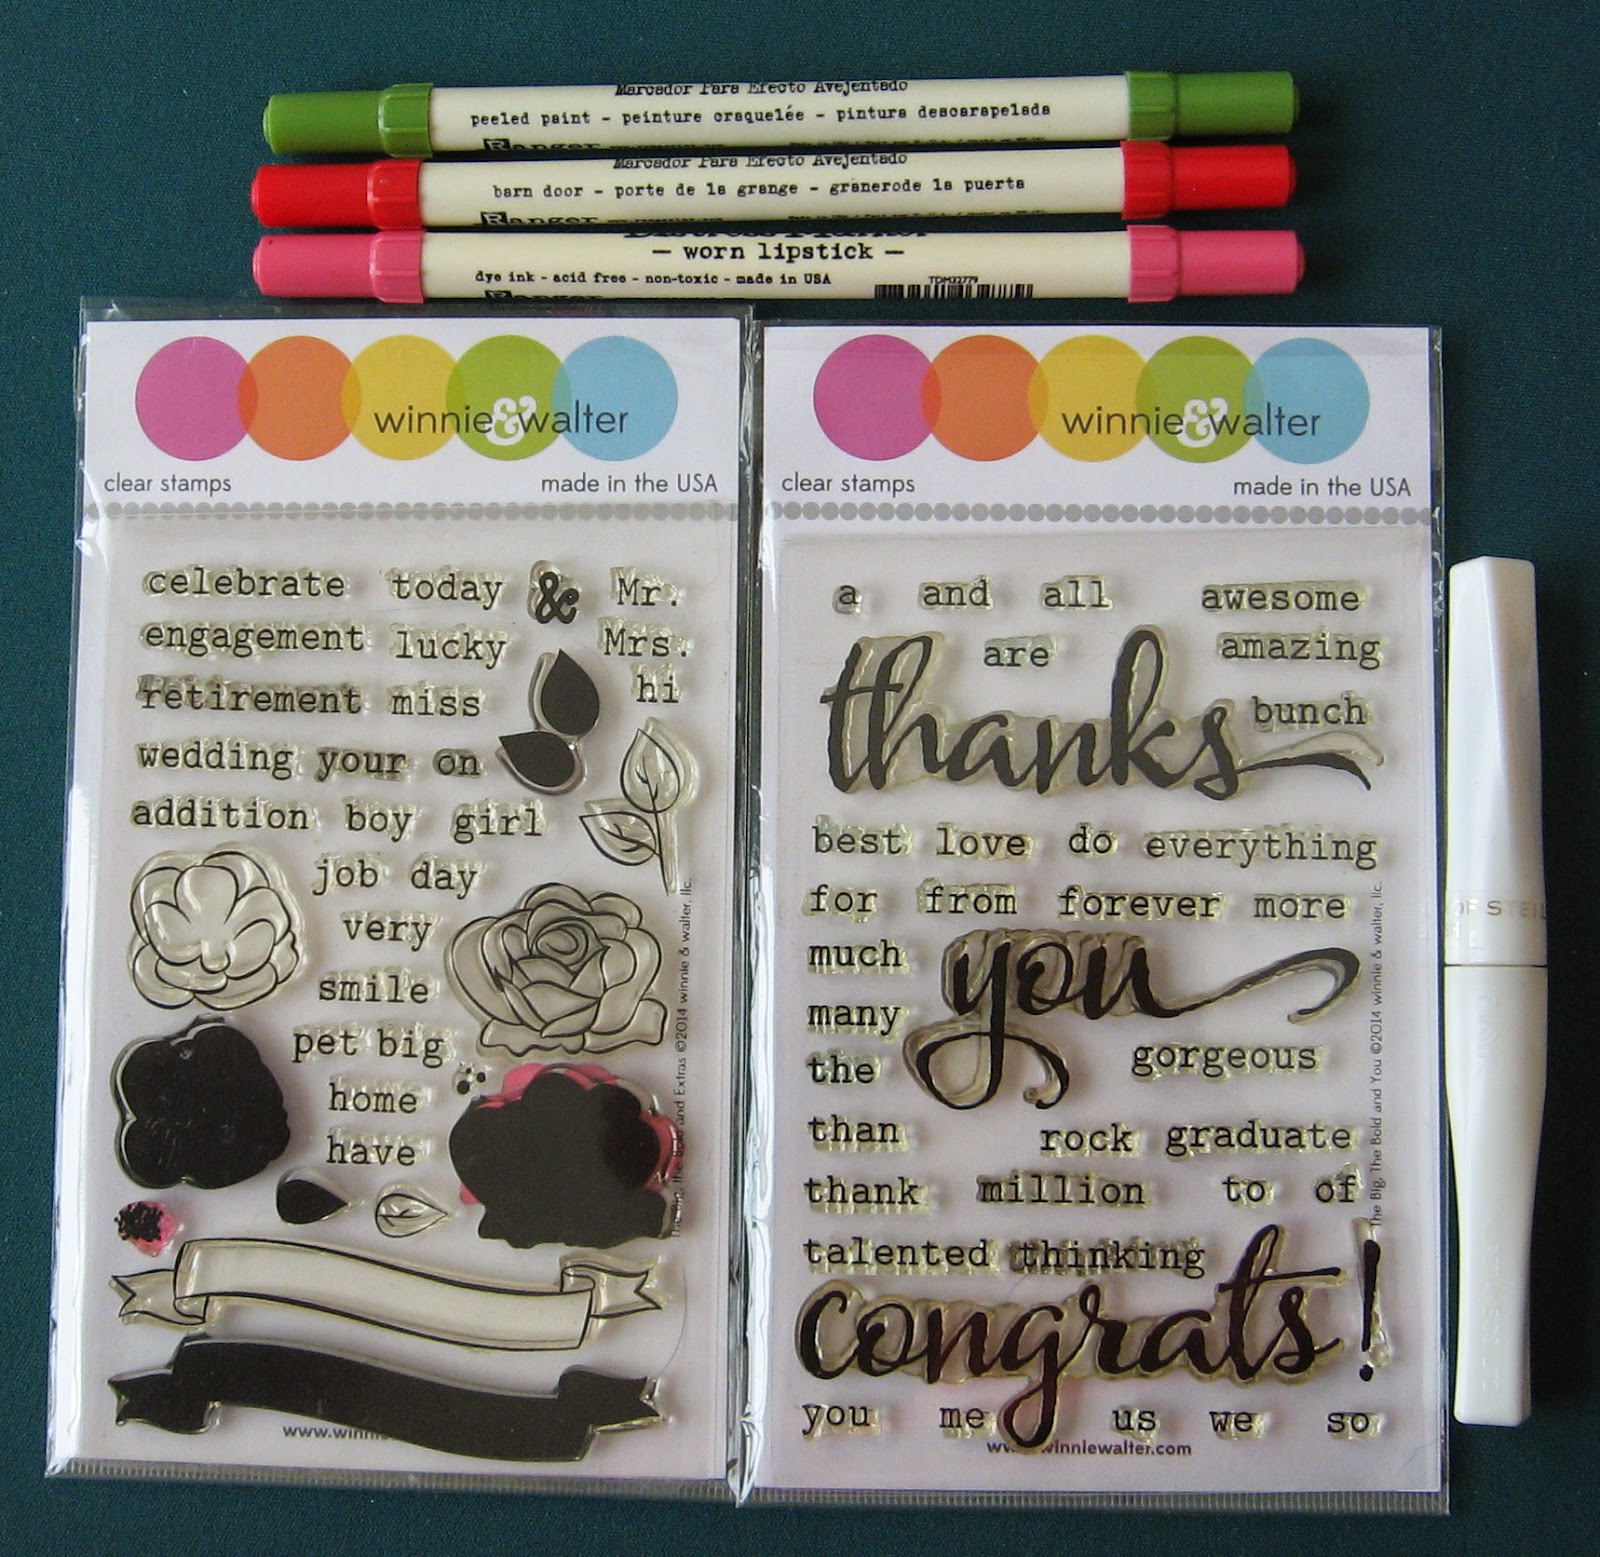 Marcador Para Efecto Avejentado
peeled paint - peinture craquelée - pintura descarapelada
Ranger
Marcador Para Efecto Avejentado
barn door - porte de la grange - granerode la puerta
Ranger
Distress Marker
— worn lipstick —
dye ink - acid free - non-toxic - made in USA
TDM32779
Ranger
winnie & walter
clear stamps made in the USA
celebrate today & Mr.
engagement lucky Mrs.
retirement miss hi
wedding your on
addition boy girl
job day
very
smile
pet big
home
have
The Big, the Bold and Extras ©2014 winnie & walter, llc.
www.winnie
winnie & walter
clear stamps made in the USA
a and all awesome
are amazing
thanks bunch
best love do everything
for from forever more
much you
many
the gorgeous
than rock graduate
thank million to of
talented thinking
congrats!
you me us we so
The Big, The Bold and You ©2014 winnie & walter, llc.
winniewalter.com
OF STEL